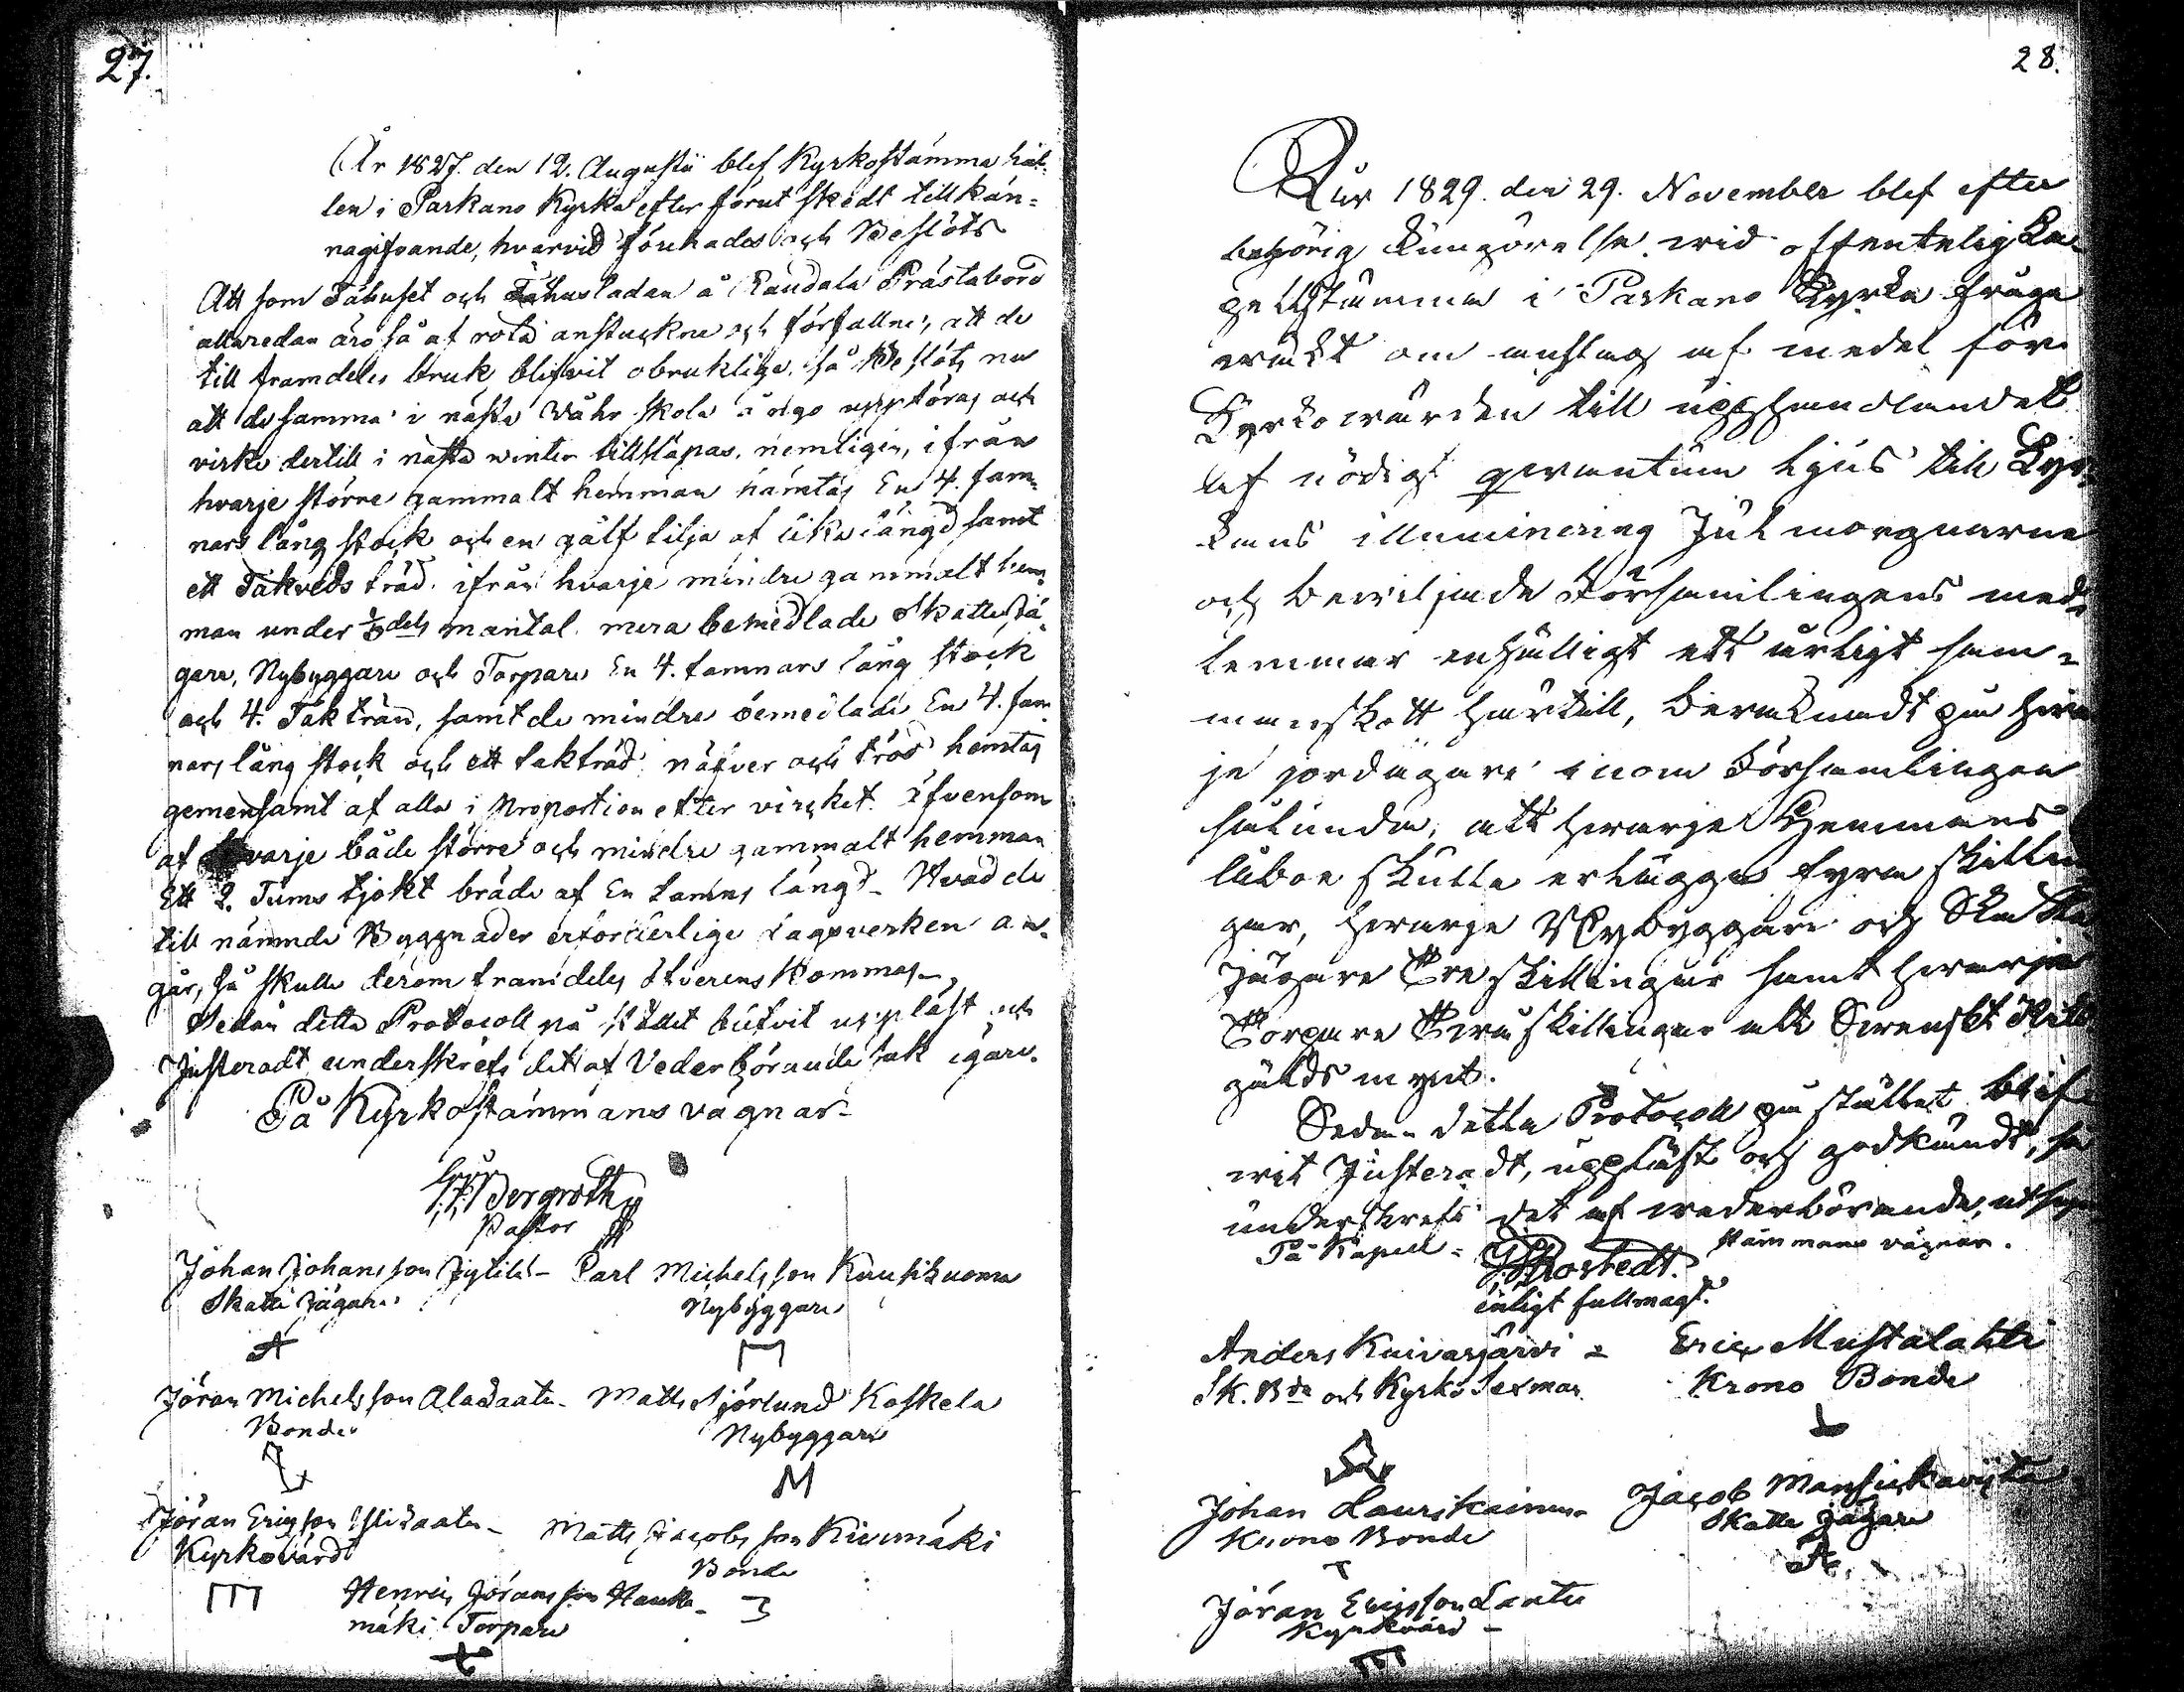 27.
År 1827. den 12. Augusti blef Kyrkostämma hål-
len i Parkano Kyrka efter förut skedt tillkän-
nagifvande, hvarvid förehades och Beslöts
Att som Fähuset och Fähusladan å Raudala Prästabord
allaredan äro så af röta anstuckne och förfallne, att de
till framdeles bruk blifvit obruklige, så Beslöts nu
att desamma i nästa Våhr skola å nyo uppföras och
virke dertill i nästa winter tillsläpas, nemligen, ifrån
hvarje större gammalt hemman hämtas En 4. fam-
nars lång stock och en gålf tilja af lika längd samt
ett Takveds träd. ifrån hvarje mindre gammalt hem-
man under 1/8 dels mantal. mera bemedlade Skattejä-
gare, Nybyggare och Torpare En 4. famnars lång stock
och 4. Takträn, samt de mindre bemedlade En 4. fam-
nars lång stock och ett takträd, näfver och tröd hemtas
gemensamt af alla i Proportion efter virket. äfvensom
af hvarje både större och mindre gammalt hemman
Ett 2. Tums tjokt bräde af En famns längd. Hvad de
till nämnde Byggnader erforderlige Dagsverken an-
går, så skulle derom framdeles öfverenskommas.
Sedan detta Protocoll på stället blifvit uppläst och
Justeradt underskrefs det af Vederbörande sak ägare.
På Kyrkostämmans vägnar
Bergroth
Pastor
Johan Johansson Jylihä - Carl Michelsson Kuusiluoma
Skatte Jägare Nybyggare
Jöran Michelsson Alaskaatu - Matts Sjörlund Koskela
Bonde Nybyggare
M
Jöran Ericsson - Matts Jacobsson Kivimäki
Kyrkovärd Bonde
Henric Jöransson Hauka-
mäki Torpare
28.
Åhr 1829. den 29. November blef efter
behörig kungörelse wid offentelig Ka-
pellstämma i Parkano Kyrka fråga
wäckt om anslag af medel för
Kyrkowärden till upphandlandet
af nödigt qwantum ljus till Kyr-
kans illuminering Julmorgnarne
och bewiljade Församlingens med-
lemmar enhälligt ett årligt sam-
manskott härtill, beräknadt på hwar-
je jordägare inom Församlingen
sålunda, att hwarje Hemmans
åboe skulle erlägga fyra skillin-
gar, hwarje Nybyggare och Skatte
jägare Tre skillingar samt hwarje
Torpare Twå skillingar allt Swenskt Riks
gälds mynt.
Sedan detta Protocoll på stället blif-
wit Justeradt, uppläst och godkändt, så
underskrefs det af wederbörande, utsupra
På Kapell- stämmans vägnar.
enligt fullmagt.
Anders Kuivasjärvi - Eric Mustalahti
Sk. Bde och Kyrko Sexman Krono Bonde
Johan Laurikainen Jacob Mansikaviita
Krono Bonde Skatte Jägare
Jöran Ericsson Lantu
Kyrkvärd